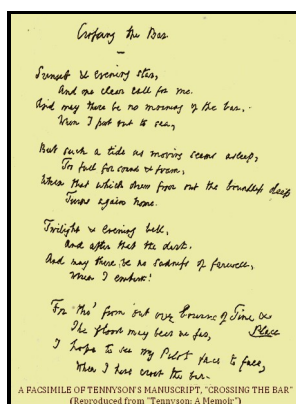 Crossing the Bar
Sunset & evening star,
And one clear call for me.
And may there be no moaning of the bar,
When I put out to sea,
But such a tide as moving seems asleep,
Too full for sound & foam,
When that which drew from out the boundless deep
Turns again home.
Twilight & evening bell,
And after that the dark.
And may there be no sadness of farewell,
When I embark!
For tho' from out our bourne of Time &
Place
The floods may bear me far,
I hope to see my Pilot face to face,
When I have crost the bar.
A FACSIMILE OF TENNYSON'S MANUSCRIPT, "CROSSING THE BAR"
(Reproduced from "Tennyson: A Memoir")